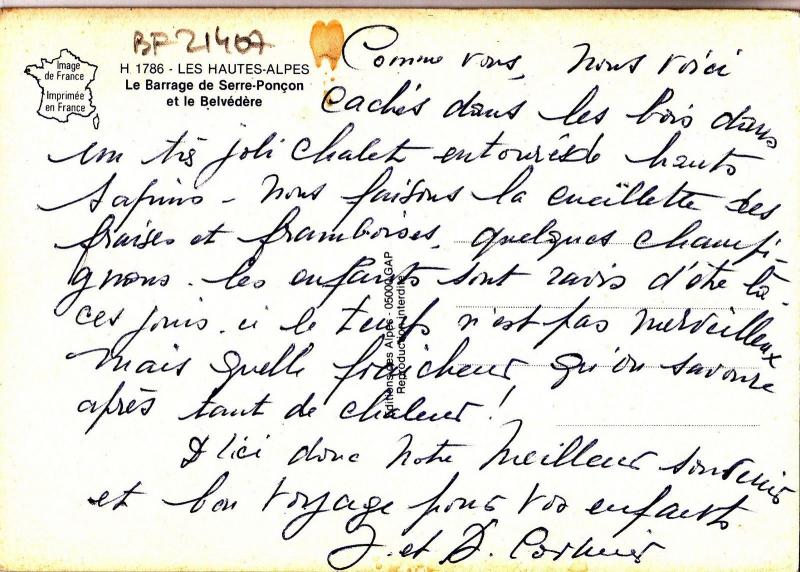 BF 21407
Image
de France
Imprimée
en France
H 1786 - LES HAUTES-ALPES
Le Barrage de Serre-Ponçon
et le Belvédère
Comme vous, nous voici
cachés dans les bois dans
un très joli chalet entouré de hauts
sapins - nous faisons la cueillette des
fraises et framboises, quelques champi-
gnons. les enfants sont ravis d'être là.
ces jours-ci le temps n'est pas merveilleux
mais quelle fraîcheur, qu'on savoure
après tant de chaleur!
D'ici donc notre meilleur souvenir
et bon voyage pour vos enfants
J. et D.
Editions des Alpes - 05000 GAP
Reproduction Interdite